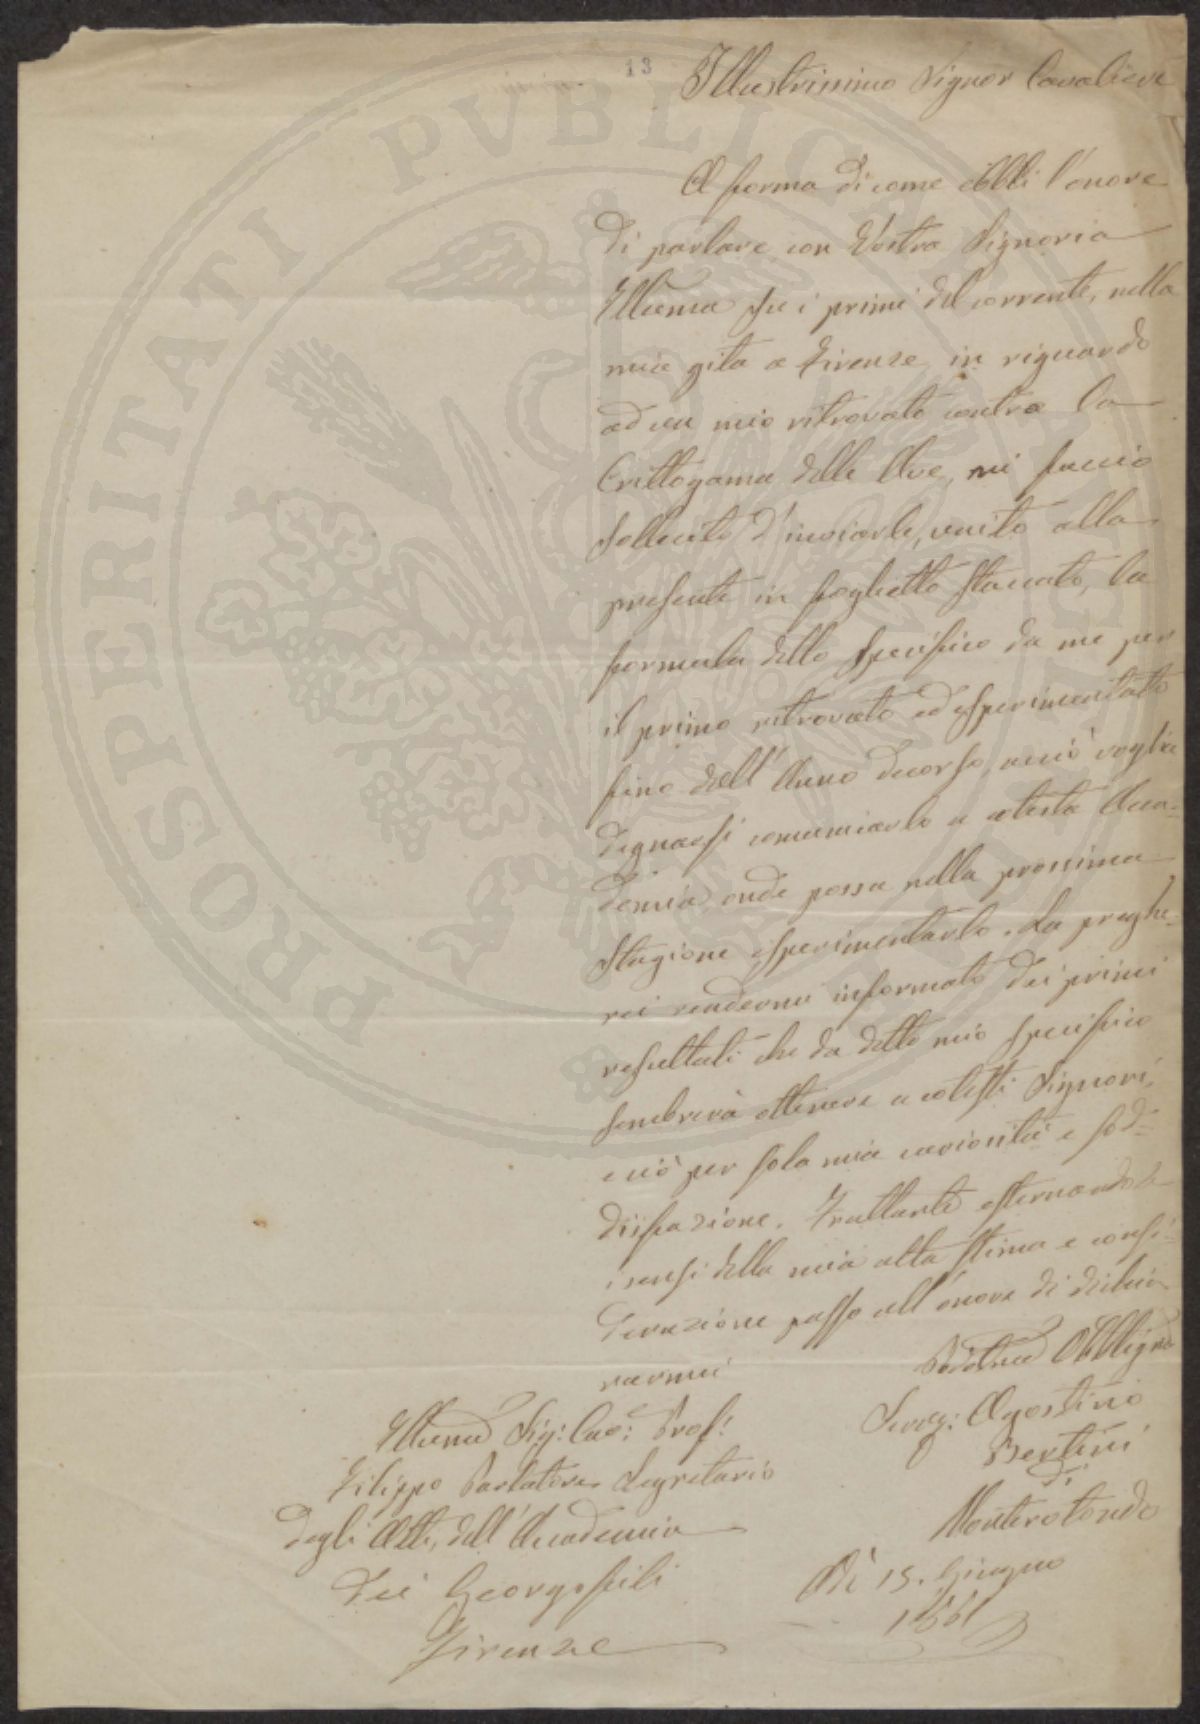 13
Illustrissimo Signor Cavaliere
A forma di come ebbi l'onore
di parlare con Vostra Signoria
Illuma su i primi del corrente, nella
mia gita a Firenze in riguardo
ad un mio ritrovato contro la
Crittogama delle Uve, mi faccio
sollecito d'inviarle, unito alla
presente in foglietto staccato, la
formula dello specifico da me per
il primo ritrovato ed esperimentato
fino dell'Anno decorso, acciò voglia
degnarsi comunicarlo a cotesta Acca=
demia onde possa nella prossima
stagione esperimentarlo. La preghe=
rei rendermi informato dei primi
resultati che da detto mio specifico
sembrerà ottenere a cotesti Signori,
e ciò per sola mia curiosità e sod=
disfazione. Frattanto esternandole
i sensi della mia alta stima e consi=
derazione passo all'onore di dichia
rarmi
Obbligmo
Servo: Agostino
Bertini
di
Monterotondo
Illumo Sig: Cav: Prof:
Filippo Parlatore Segretario
degli Atti, dell'Accademia
dei Georgofili
Firenze
Di 15. Giugno
1861
PROSPERITATI PVBLICAE